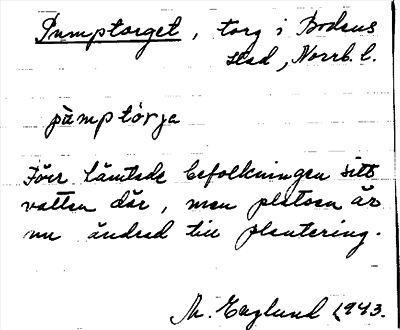 Pumptorget, torg i Bodens
stad, Norrb. l.
pùmptòrja
Förr hämtade befolkningen sitt
vatten där, men platsen är
nu ändrad till plantering.
M. Englund 1943.